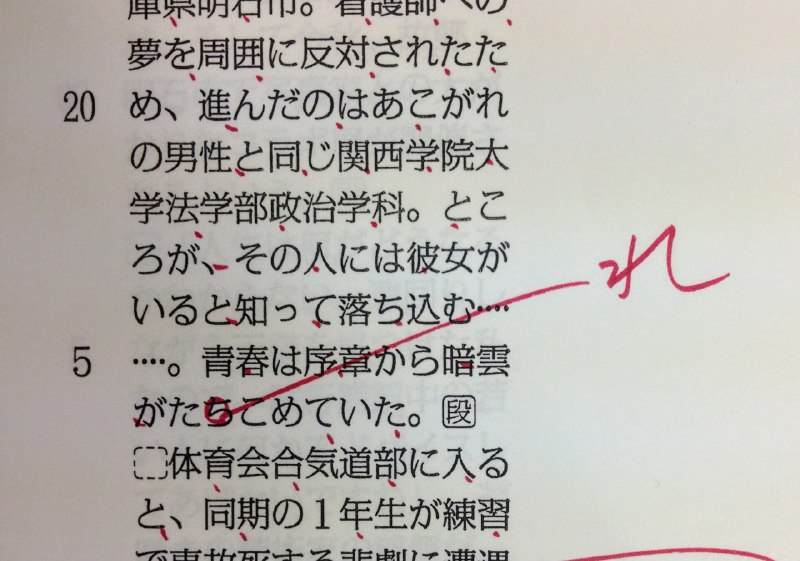 庫県明石市。看護師への
夢を周囲に反対されたた
20 め、進んだのはあこがれ
の男性と同じ関西学院大
学法学部政治学科。とこ
ろが、その人には彼女が
いると知って落ち込む‥‥
5 ‥‥。青春は序章から暗雲
がたちこめていた。段
体育会合気道部に入る
と、同期の1年生が練習
で事故死する悲劇に遭遇
れ